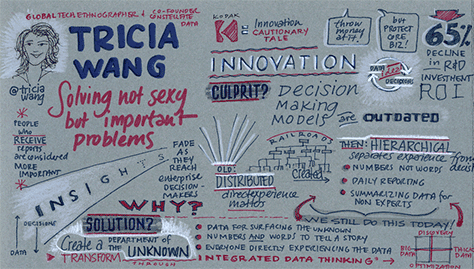 GLOBAL TECH ETHNOGRAPHER + CO-FOUNDER
CONSTELLATE
DATA
TRICIA
WANG
@tricia
wang
Solving not sexy
but important
problems
* PEOPLE
who
RECEIVE
reports
are considered
MORE
IMPORTANT
*
INSIGHTS
FADE
AS
THEY
REACH
enterprise
DECISION-
MAKERS
DECISIONS
DATA
WHY?
SOLUTION?
Create a DEPARTMENT of the UNKNOWN
TRANSFORM THROUGH INTEGRATED DATA THINKING
KODAK
K = Innovation
CAUTIONARY
TALE
throw
money
at it!
but
PROTECT
CORE
BIZ!
65%
DECLINE
in R+D
INVESTMENT
ROI
INNOVATION
DATA
Ideas
DECISIONS
CULPRIT?
Decision
Making
MODELS are OUTDATED
RAILROADS
Created
OLD:
DISTRIBUTED
direct experience
matters
THEN: HIERARCHICAL
separates experience from decisions
• NUMBERS NOT WORDS
• DAILY REPORTING
• SUMMARIZING DATA for
NON EXPERTS
WE STILL DO THIS TODAY!
• DATA FOR SURFACING THE UNKNOWN
• NUMBERS AND WORDS TO TELL A STORY
• EVERYONE DIRECTLY EXPERIENCING THE DATA
DISCOVERY
BIG
DATA
THICK
DATA
OPTIMIZATION